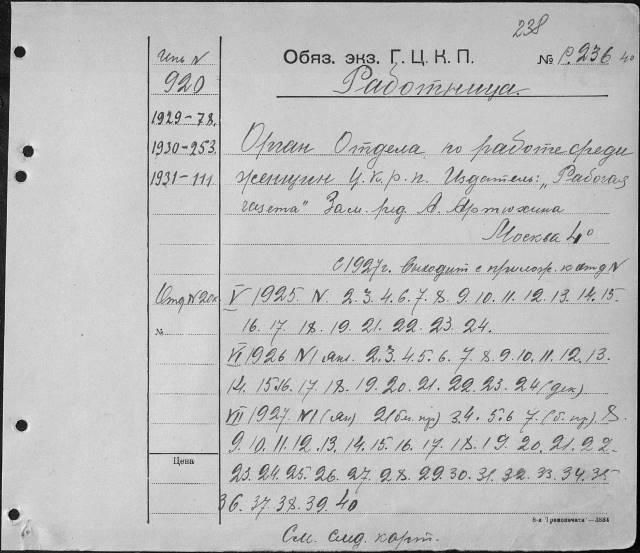 238
Обяз. экз. Г.Ц.К.П.
№ Р.236 4°
Инв N
920
Работница.
1929-78.
1930-253.
1931-111
Орган Отдела по работе среди
женщин Ц.К.Р.П. Издатель: „Рабочая
газета" Зам. ред. А. Артюхина
Москва 4°
с 1927г. выходит с прилож. к отд N
Отд N 20к.
№
V 1925. N. 2.3.4.6.7.8.9.10.11.12.13.14.15.
16.17.18.19.21.22.23.24.
VI 1926 N1 янв. 2.3.4.5.6.7.8.9.10.11.12.13.
14.15.16.17.18.19.20.21.22.23.24 (дек)
VII 1927. N1 (Ян) 2 (без пр) 3.4.5.6 7. (б. пр). 8.
9.10.11.12.13.14.15.16.17.18.19.20.21.22.
23.24.25.26.27.28.29.30.31.32.33.34.35
36.37.38.39.40
Цена
См. след. карт.